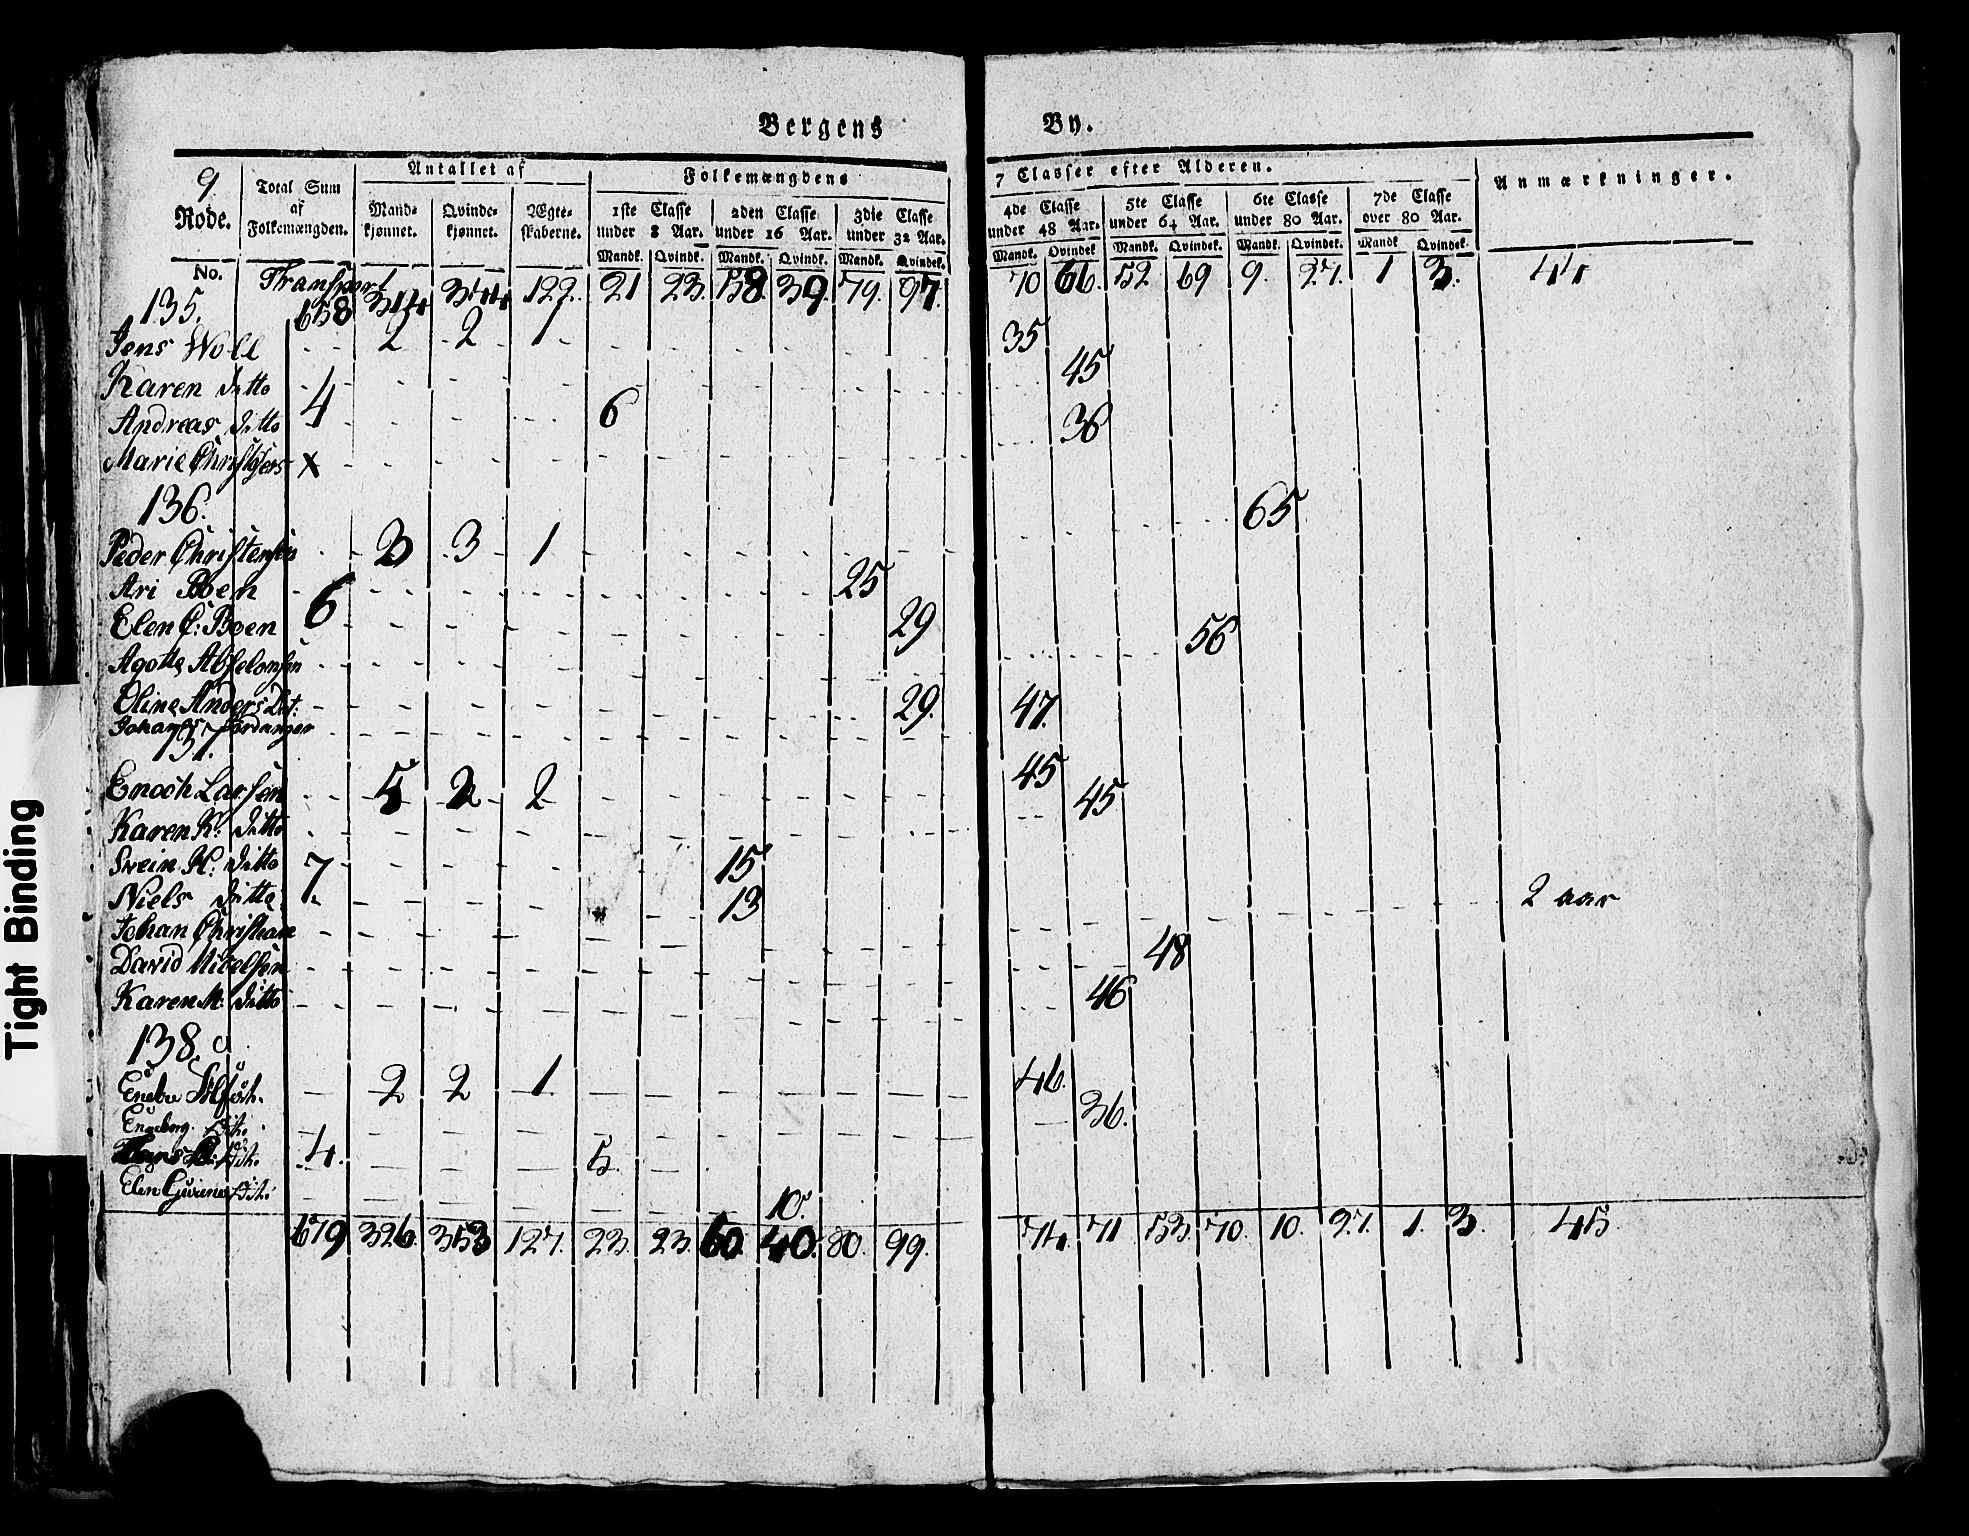 Bergens By.
9 Rode. Total Sum af Folkemængden. Antallet af Folkemængdens 7 Classer efter Alderen. Anmærkninger.
Mandkjønnet. Qvindekjønnet. Ægteskaberne. 1ste Classe under 8 Aar. 2den Classe under 16 Aar. 3die Classe under 32 Aar. 4de Classe under 48 Aar. 5te Classe under 64 Aar. 6te Classe under 80 Aar. 7de Classe over 80 Aar.
Mandk. Qvindk. Mandk. Qvindk. Mandk. Qvindek. Mandk. Qvindek. Mandk. Qvindek. Mandk. Qvindek. Mandk Qvindek.
No. Transport
135. 658 314 344 122. 21 23. 58. 39. 79. 97. 70 66. 52 69 9. 27. 1 3. 44
Jens Woll 2 2 1 35
Karen Ditto 45
4
Andreas Ditto 6
Marie 36
X
136.
Peder Christensen 3 3 1 65
Ari Boen 25
6
Elen C: Boen 29
Agotte Abselonsen 56
Oline Anders Dat: 29.
Johans 47.
137.
Enoch Larsen 5 2 2 45
Karen K: Ditto 45
Svein H: Ditto 15
7.
Niels Ditto 13
Johan Christian 2 aar
David Mikelsen 48
Karen M: Ditto 46
138.
2 2 1. 46.
Engeborg. Dito 36.
4. 5.
Elen 10.
679 326. 353 127. 23. 23. 60. 40. 80. 99. 74. 71 53. 70. 10. 27. 1. 3. 45.
Tight Binding